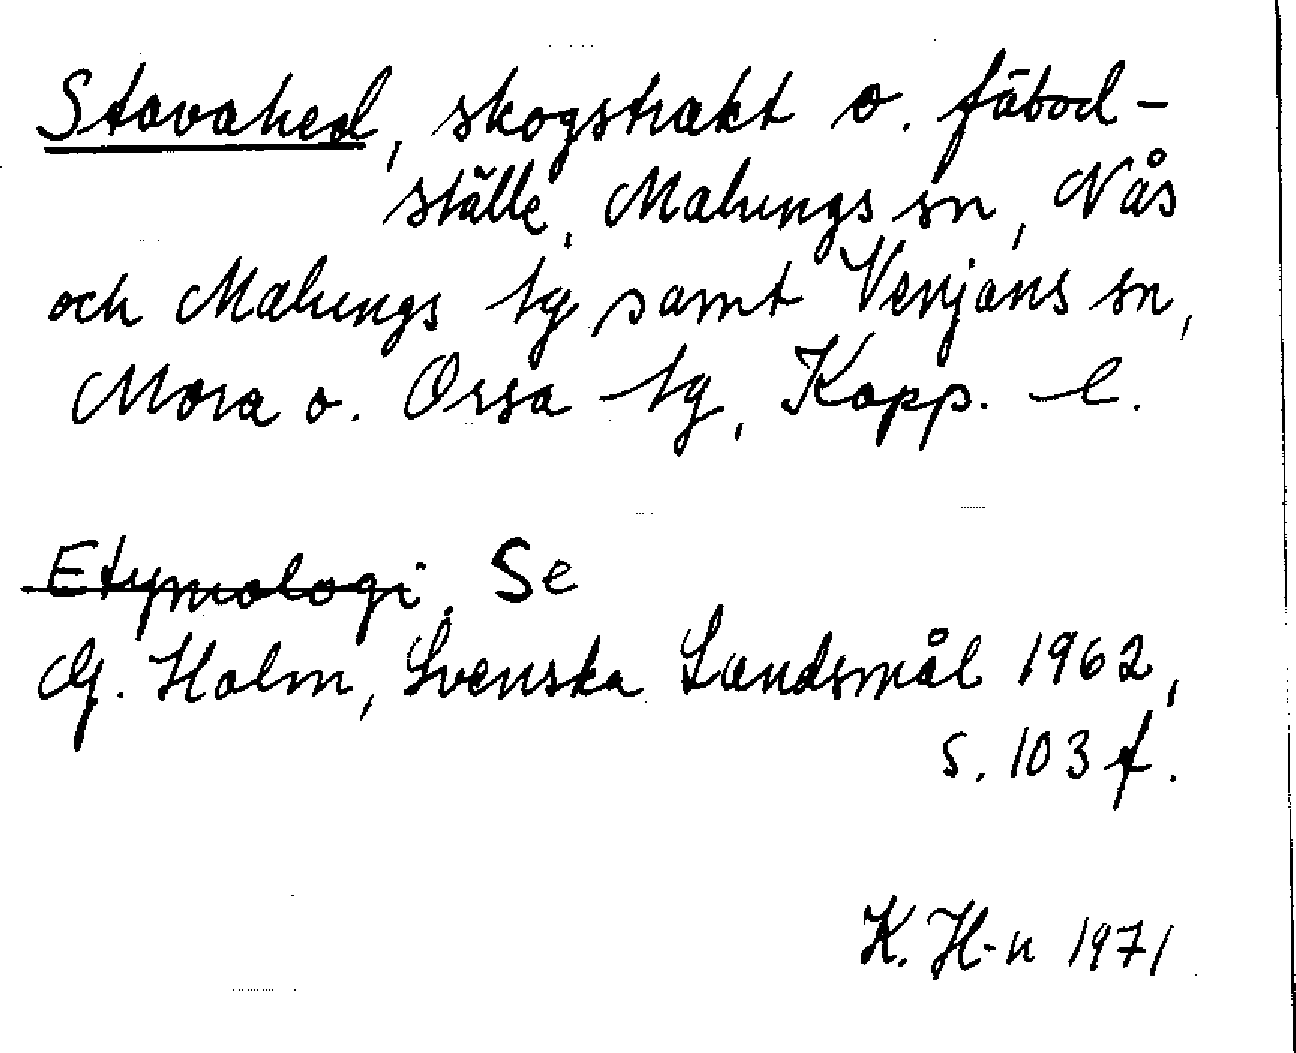 Stavahed, skogstrakt o. fäbod-
ställe, Malungs sn, Nås
och Malungs tg samt Venjans sn,
Mora o. Orsa tg, Kopp. l.
Etymologi. Se
G. Holm, Svenska Landsmål 1962,
s. 103 f.
K. H-n 1971